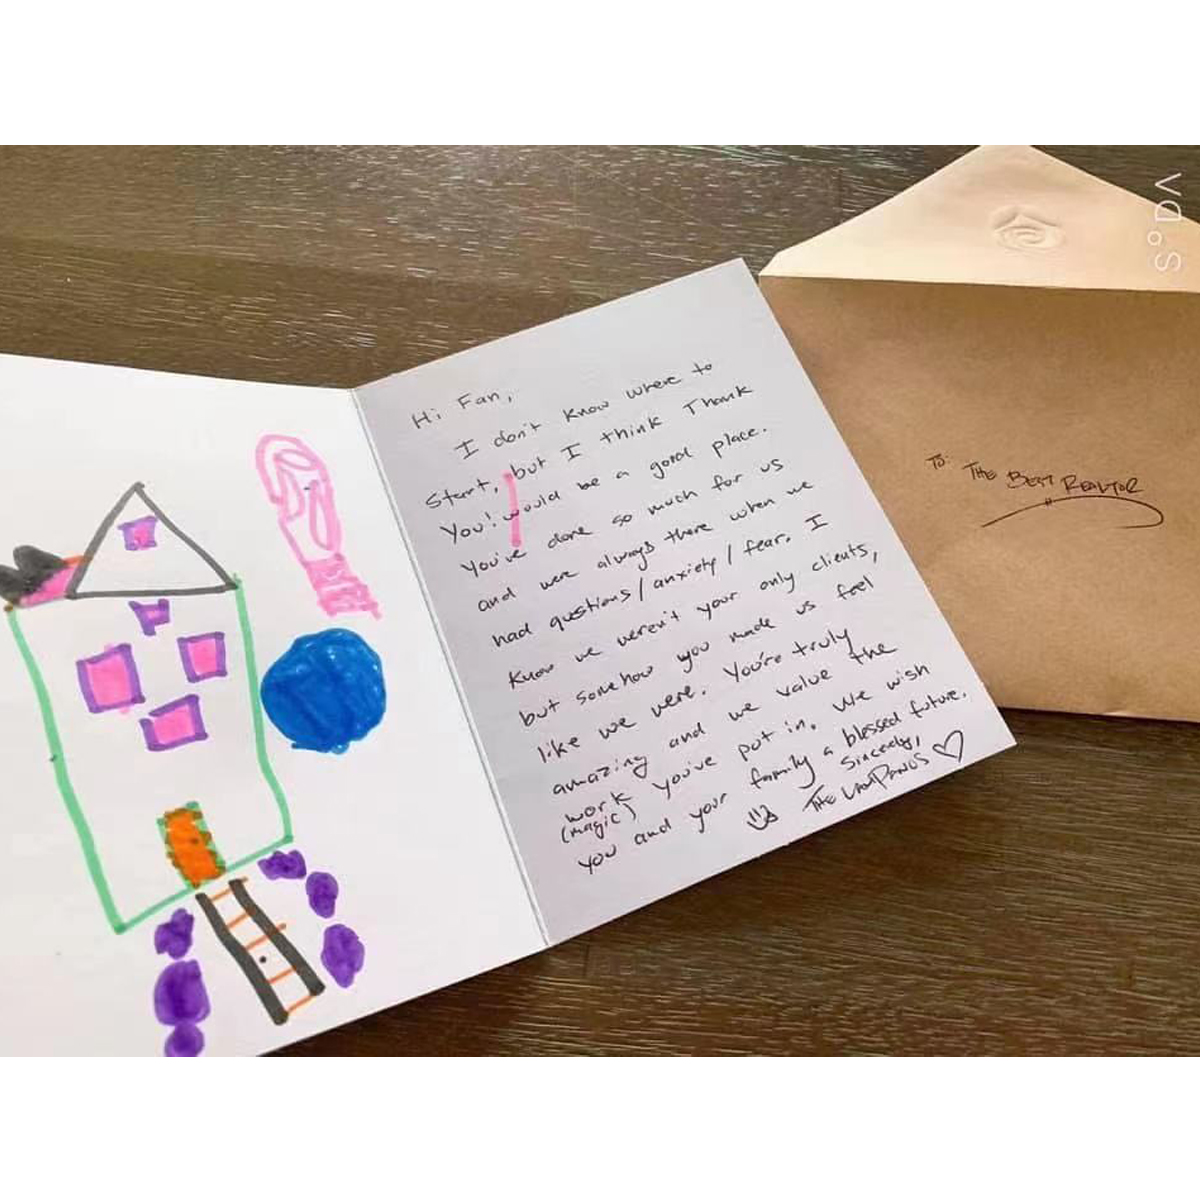 Hi Fan,
I don't know where to
start, but I think Thank
You! would be a good place.
You've done so much for us
and were always there when we
had questions/anxiety/fear. I
know we weren't your only clients,
but somehow you made us feel
like we were. You're truly
amazing and we value the
work (magic) you've put in. We wish
you and your family a blessed future.
Sincerely,
THE
TO: THE BEST REALTOR
SODA